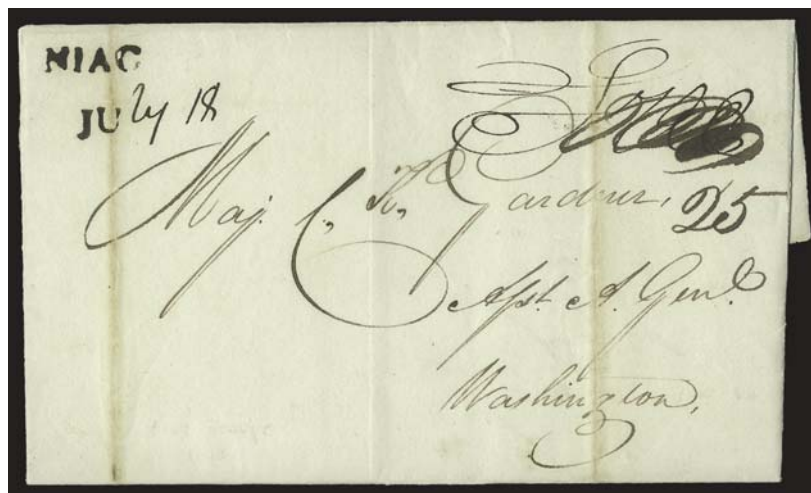 NIAG
JUly 18
Maj. C. K. Gardner, 25
Asst. A. Genl.
Washington,